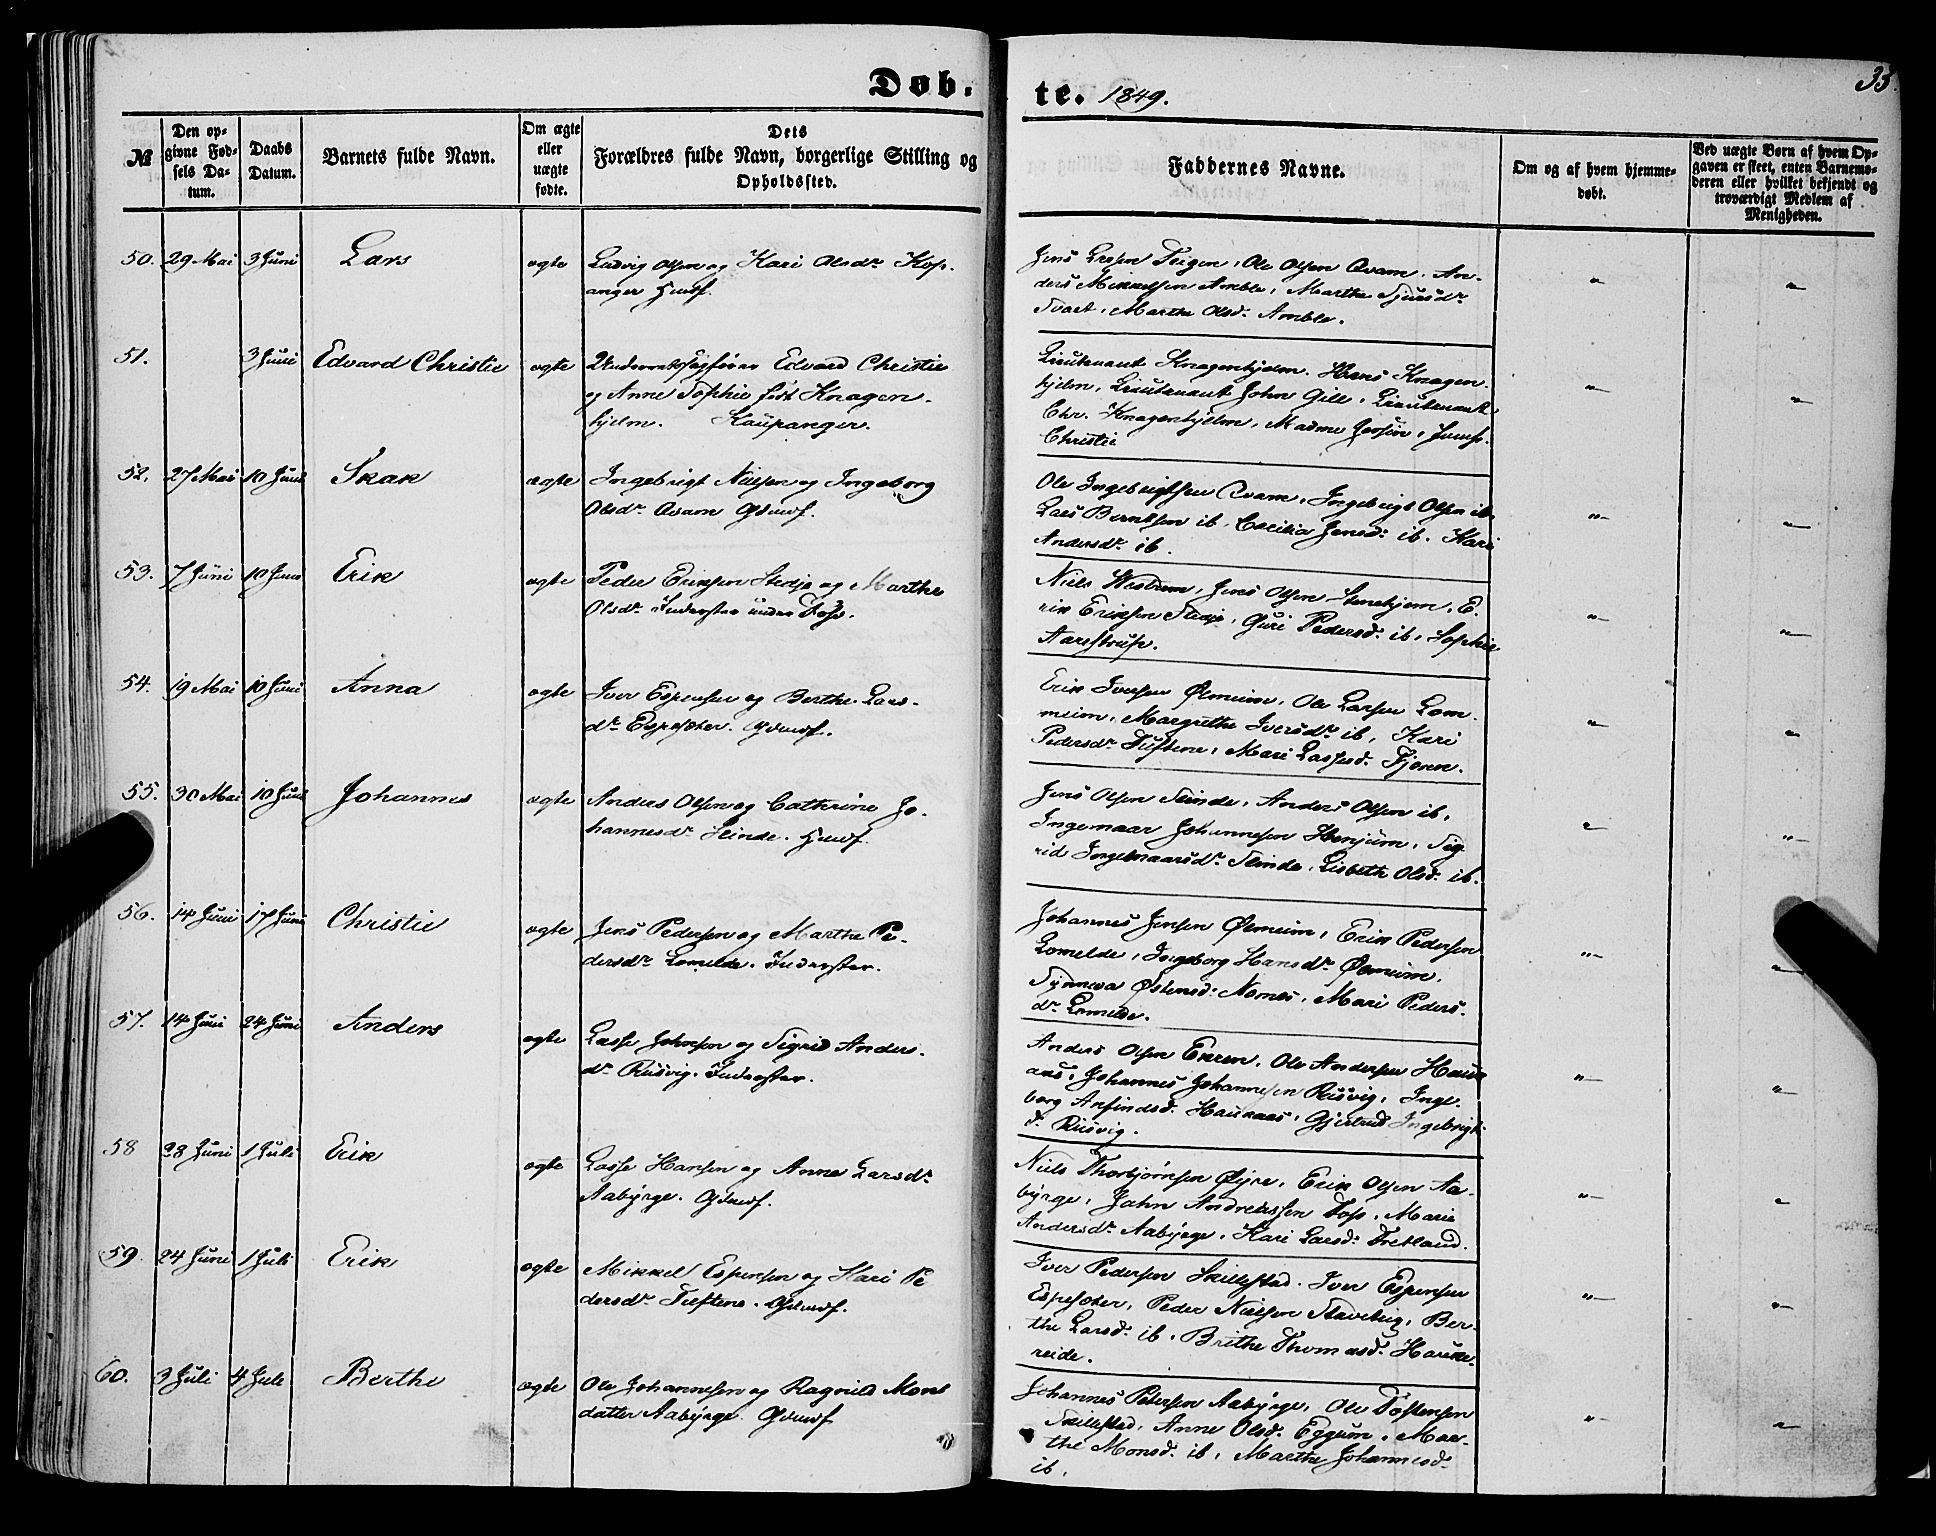 Døb.
te. 1849.
33.
№
Den op-
givne Fød-
sels Da-
tum.
Daabs
Datum.
Barnets fulde Navn.
Om ægte
eller
uægte
fødte.
Dets
Forældres fulde Navn, borgerlige Stilling og
Opholdssted.
Faddernes Navne.
Om og af hvem hjemme-
døbt.
Ved uægte Børn af hvem Op-
gaven er skeet, enten Barnemo-
deren eller hvilket bekjendt og
troværdigt Medlem af
Menigheden.
50. 29 Mai 3 Juni Lars ægte Ludvig Olsen og Kari Olsdr. Kop-
anger Hmdf.
Jens Olsen Olsen Qvam, An-
ders Mikkelsen Amble, Marthe
Marthe Olsd. Amble.
51. 3 Juni Edvard Christie ægte Underretssagfører Edvard Christie
og Anne Sophie født Knagen-
hjelm. Kaupanger.
Lieutenant Knagenhjelm. Hans Knagen-
hjelm, Lieutenant John Gill, Lieutenant
Chr. Knagenhjelm, Madme Jomfr.
Christie
52. 27 Mai 10 Juni Skak ægte Ingebrigt Nielsen og Ingeborg
Olsdr. Qvam Gdmdf.
Ole Ingebrigtsen Qvam, Ingebrigt Olsen ib.
Lars Berntsen ib, Cecilia Jensd. ib. Kari
Andersdr. ib.
53. 7 Juni 10 Juni Erik ægte Peder Eriksen Stedje og Marthe
Olsdr. Inderster under Foss.
Niels Jens Olsen Stenehjem, E-
rik Eriksen Stedje, Guri Pedersd. ib, Sophie
54. 19 Mai 10 Juni Anna ægte Iver Espensen og Berthe Lars-
dr. Espesæter. Gdmdf.
Erik Iversen Ølmeim, Ole Larsen Lom-
meim, Margrethe Iversdr. ib, Kari
Pedersdr. Tuftene, Mari Lassesd. Fjøren.
55. 30 Mai 10 Juni Johannes ægte Anders Olsen og Cathrine Jo-
hannesdr. Slinde. Hmdf.
Jens Olsen Slinde, Anders Olsen ib,
Ingemaar Johannesen Henjum, Sig-
rid Ingebmaarsdr. Slinde, Lisbeth Olsd. ib.
56. 14 Juni 17 Juni Christie ægte Jens Pedersen og Marthe Pe-
dersdr. Lomelde. Inderster.
Johannes Jensen Ølmeim, Erik Pedersen
Lomelde, Ingeborg Hansdr. Ølmeim.
Synneva Østensd. Nornes, Mari Peders-
dr. Lomelde.
57. 14 Juni 24 Juni Anders ægte Lasse Johnsen og Sigrid Anders-
dr. Rusvig. Inderster.
Anders Olsen Ekren. Ole Andersen Hauk-
aas, Johannes Johannesen Rusvig, Inge-
borg Anfindsd. Haukaas, Gjertrud Ingebrigt-
d. Rusvig.
58 28 Juni 1 Juli Erik ægte Lasse Hansen og Anna Larsdr.
Aabyrge. Gdmdf.
Niels Thorbjørnsen Øyre, Erik Olsen Aa-
byrge, John Andreassen Foss, Marie
Andersdr. Aabyrge, Kari Larsd. Fretland.
59. 24 Juni 1 Juli Erik ægte Mikkel Espensen og Kari Pe
dersdr. Tuftene. Gdmdf.
Iver Pedersen Skillestad. Iver Espensen
Espesæter, Peder Nielsen Stavebrig, Ber-
the Larsd. ib, Brithe Thomasd. Hauke-
reide.
60. 3 Juli 4 Juli Berthe ægte Ole Johannesen og Ragnild Mons
datter Aabyrge. Gdmdf
Johannes Petersen Aabyrge, Ole Tostensen
Skillestad, Anne Olsd. Eggum, Mar-
the Monsd. ib, Marthe Johannesd.
ib.